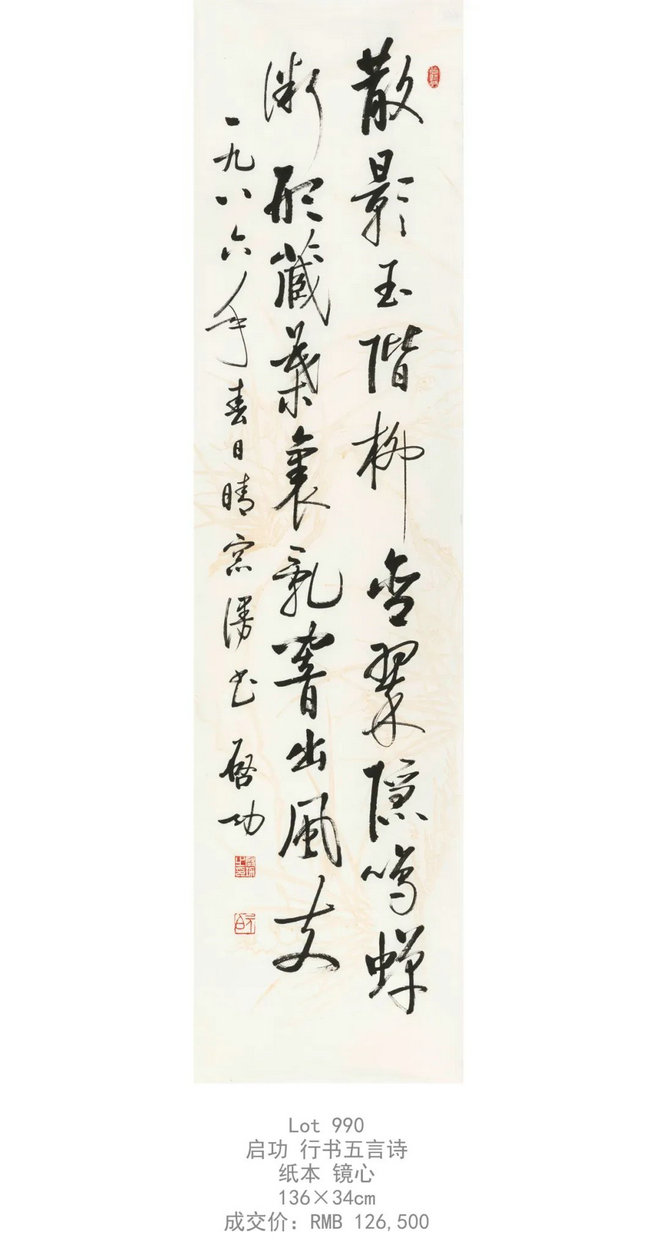 散影玉階柳含翠隱鳴蟬
微形藏葉裏亂響出風支
一九八六年春日晴窓漫书 启功
Lot 990
启功 行书五言诗
纸本 镜心
136×34cm
成交价：RMB 126,500